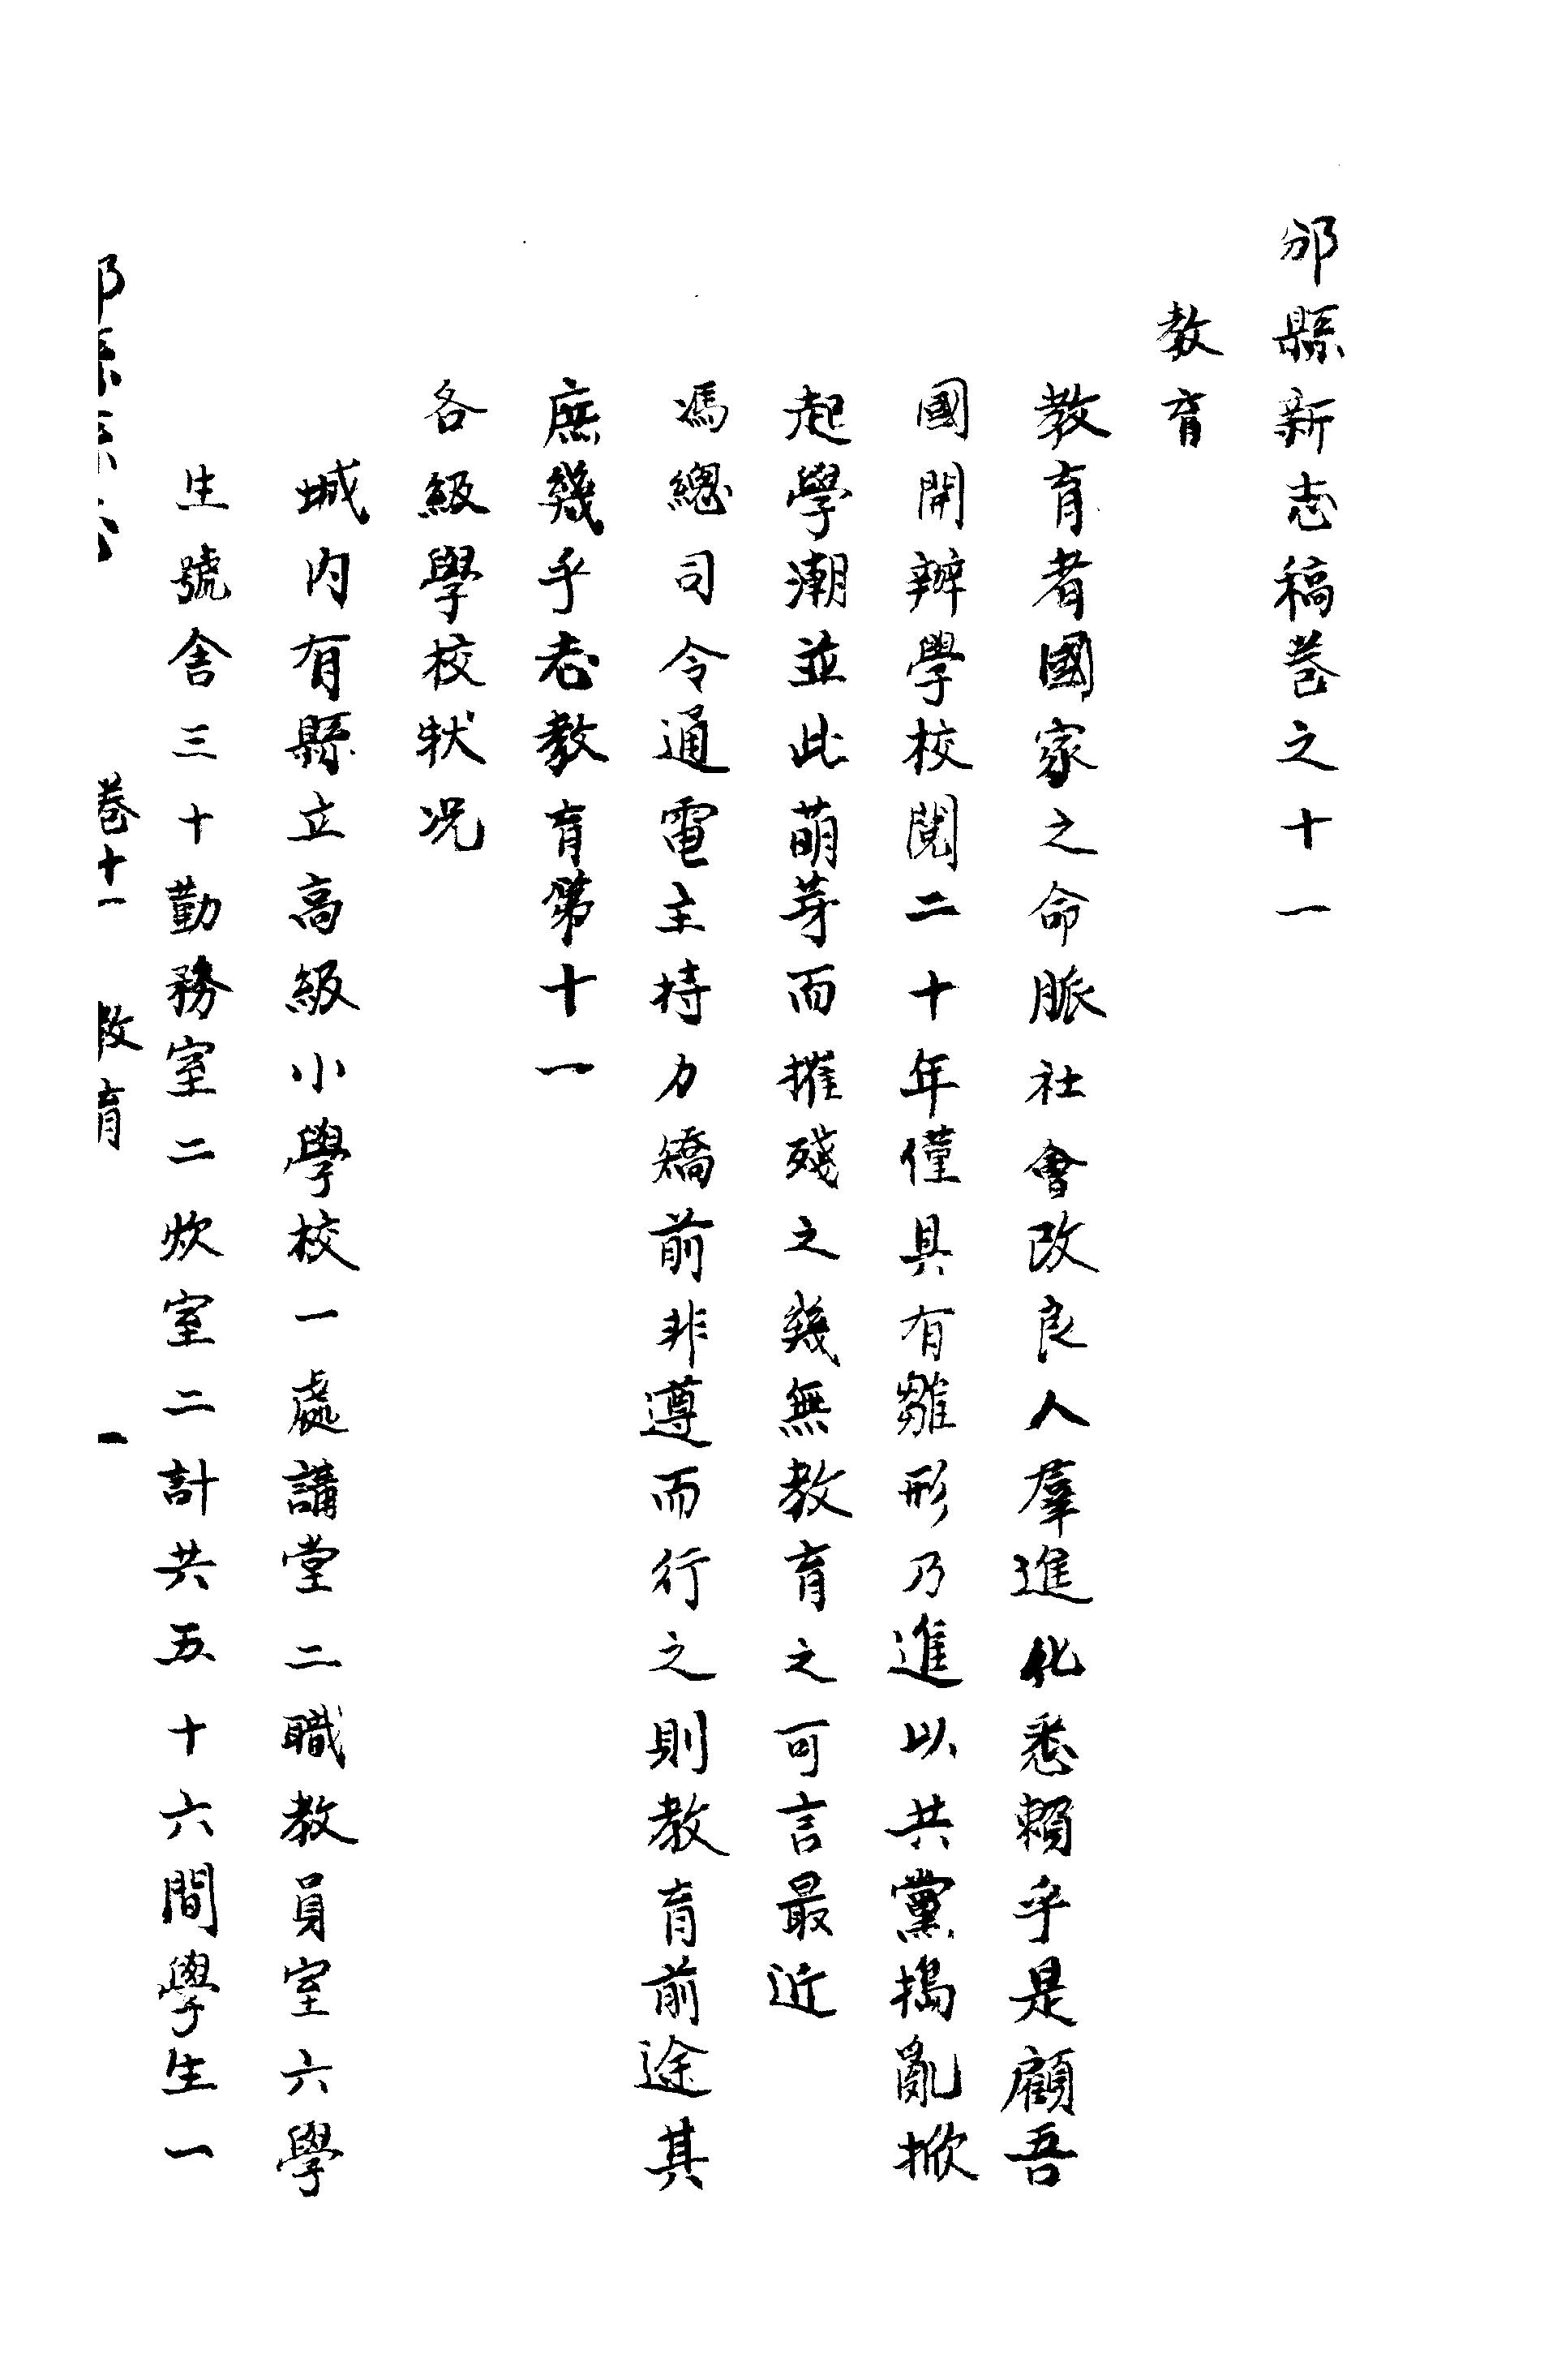 邠縣新志稿卷之十一
教育
教育者國家之命脈社會改良人羣進化悉賴乎是顧吾
國開辦學校閱二十年僅具有雛形乃進以共黨搗亂掀
起學潮並此萌芽而摧殘之幾無教育之可言最近
馮總司令通電主持力矯前非遵而行之則教育前途其
庶幾乎志教育第十一
各級學校狀况
城内有縣立高級小學校一處講堂二職教員室六學
生號舍三十勤務室二炊室二計共五十六間學生一
縣志 卷十一 教育 一